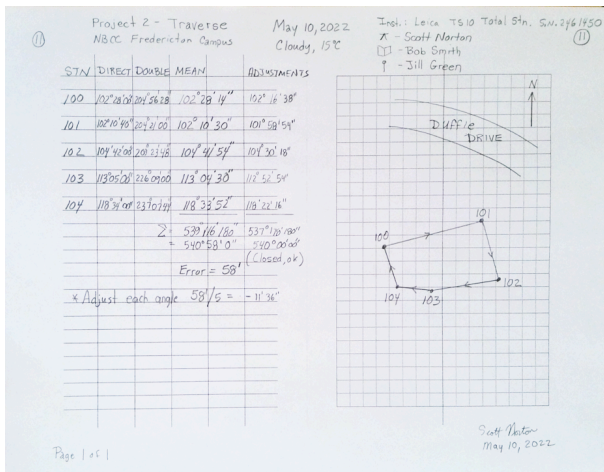 Project 2 - Traverse
NBCC Fredericton Campus
May 10, 2022
Cloudy, 15°C
Inst.: Leica TS10 Total Stn. S.N. 2461450
- Scott Norton
- Bob Smith
- Jill Green
11
11
STN DIRECT DOUBLE MEAN ADJUSTMENTS
100 102°28'08" 204°56'28" 102°28'14" 102°16'38"
101 102°10'40" 204°21'00" 102°10'30" 101°58'54"
102 104°42'00" 209°23'48" 104°41'54" 104°30'18"
103 113°05'08" 226°09'00" 113°04'30" 112°52'54"
104 118°34'00" 237°07'44" 118°33'52" 118°22'16"
Σ = 539°116'180" 537°178'180"
= 540°58'0" 540°00'00"
(Closed, ok)
Error = 58'
* Adjust each angle 58'/5 = - 11'36"
N
DUFFIE
DRIVE
101
100
102
104
103
Scott Norton
May 10, 2022
Page 1 of 1